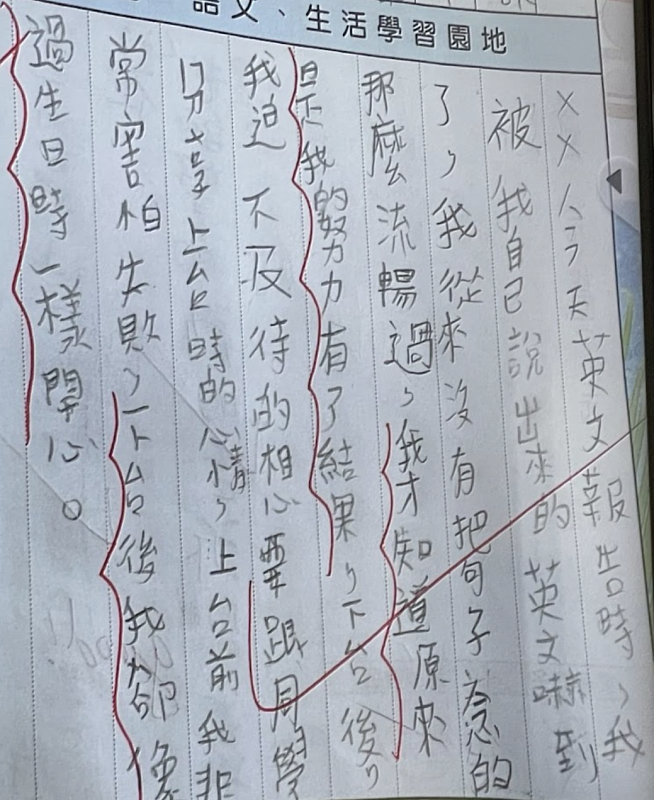 語文、生活學習園地
××今天英文報告時，我
被我自己說出來的英文嚇到
了，我從來沒有把句子念的
那麼流暢過，我才知道原來
是我的努力有了結果，下台後，
我迫不及待的想要跟同學
分享上台時的心情，上台前我非
常害怕失敗，下台後我卻像
過生日時一樣開心。